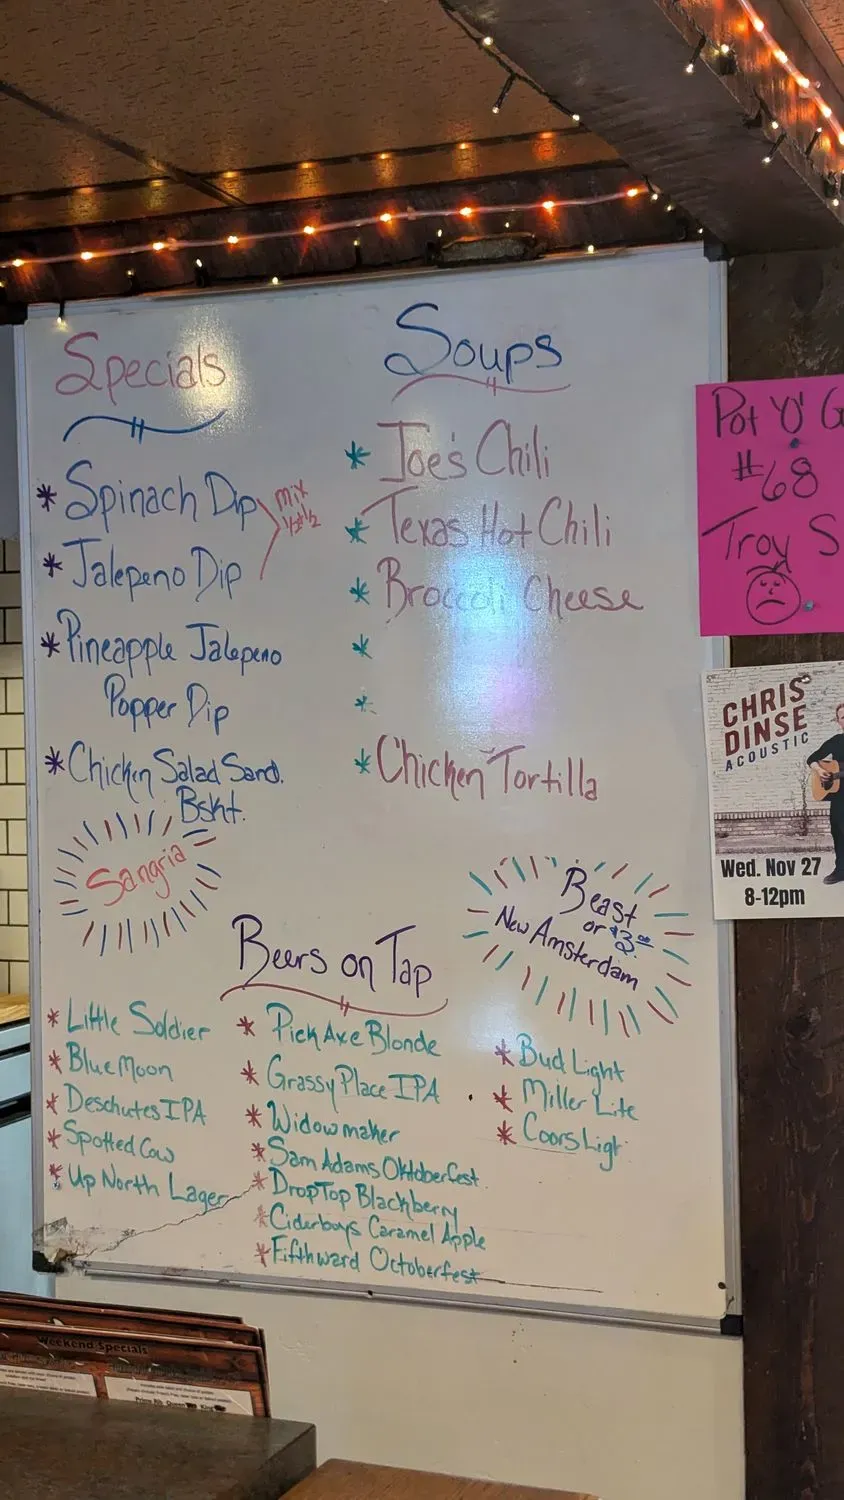 Specials
* Spinach Dip
* Jalepeno Dip
mix
1/2 & 1/2
* Pineapple Jalepeno
Popper Dip
* Chicken Salad Sand.
Bskt.
Sangria
Soups
* Joe's Chili
* Texas Hot Chili
* Broccoli Cheese
*
*
* Chicken Tortilla
Beast
or $3.00
New Amsterdam
Beers on Tap
* Little Soldier
* Blue Moon
* Deschutes IPA
* Spotted Cow
* Up North Lager
* Pick Axe Blonde
* Grassy Place IPA
* Widowmaker
* Sam Adams Oktoberfest
* Drop Top Blackberry
* Ciderboys Caramel Apple
* Fifthward Octoberfest
* Bud Light
* Miller Lite
* Coors Ligt
Pot 'O' G
#68
Troy S
CHRIS
DINSE
ACOUSTIC
Wed. Nov 27
8-12pm
Weekend Specials
Prime Rib Queen King